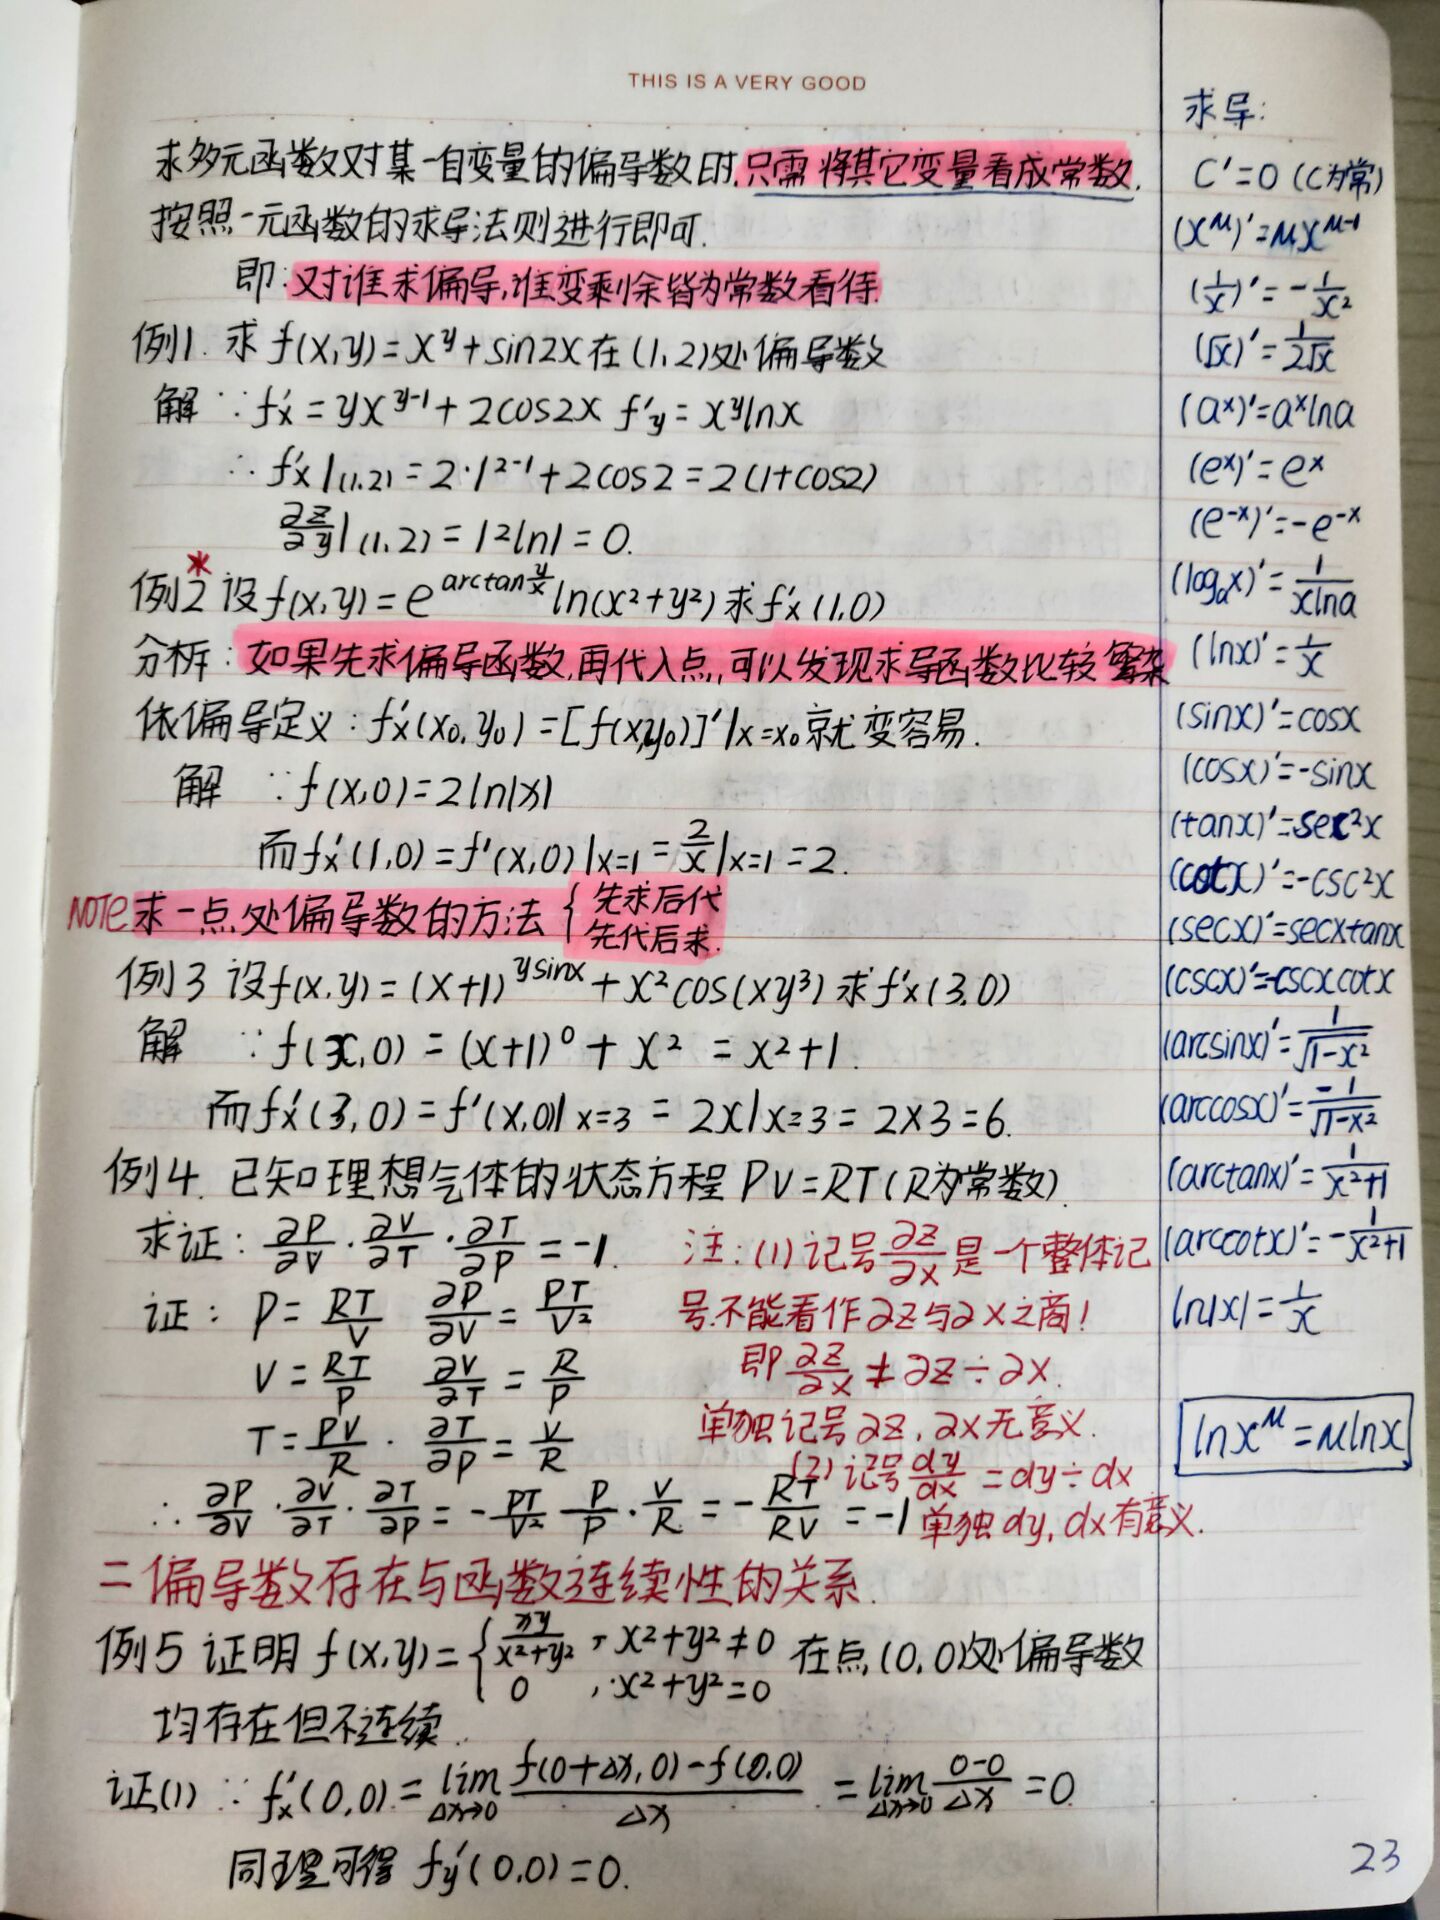 THIS IS A VERY GOOD
求多元函数对某一自变量的偏导数时,只需将其它变量看成常数,
按照一元函数的求导法则进行即可.
即:对谁求偏导,谁变剩余皆为常数看待.
例1. 求 f(x,y)=x^y+sin2x 在(1,2)处偏导数
解 ∵ f'x = yx^{y-1}+2cos2x f'y = x^y lnx
∴ f'x|(1,2) = 2·1^{2-1}+2cos2 = 2(1+cos2)
∂z/∂y|(1,2) = 1²ln1 = 0.
*
例2 设 f(x,y)=e^{arctan y/x} ln(x²+y²) 求 f'x(1,0)
分析:如果先求偏导函数,再代入点,可以发现求导函数比较繁杂
依偏导定义:f'x(x₀,y₀)=[f(x,y₀)]'|x=x₀ 就变容易.
解 ∵ f(x,0)=2ln|x|
而 f'x(1,0)=f'(x,0)|x=1 = 2/x|x=1 = 2.
NOTE 求一点处偏导数的方法 { 先求后代
先代后求.
例3 设 f(x,y)=(x+1)^{ysinx}+x²cos(xy³) 求 f'x(3,0)
解 ∵ f(x,0) = (x+1)⁰ + x² = x²+1.
而 f'x(3,0) = f'(x,0)|x=3 = 2x|x=3 = 2×3=6.
例4. 已知理想气体的状态方程 PV=RT(R为常数)
求证: ∂P/∂V · ∂V/∂T · ∂T/∂P = -1.
证: P = RT/V ∂P/∂V = PT/V²
V = RT/P ∂V/∂T = R/P
T = PV/R · ∂T/∂P = V/R
∴ ∂P/∂V · ∂V/∂T · ∂T/∂P = - PT/V² P/P · V/R = - RT/RV = -1
注:(1)记号 ∂z/∂x 是一个整体记
号.不能看作∂z与∂x之商!
即 ∂z/∂x ≠ ∂z÷∂x.
单独记号∂z,∂x无意义.
(2)记号 dy/dx = dy÷dx
单独dy,dx有意义.
二 偏导数存在与函数连续性的关系.
例5 证明 f(x,y)= { xy/x²+y² , x²+y²≠0 在点(0,0)处偏导数
0 , x²+y²=0
均存在但不连续.
证(1) ∵ f'x(0,0) = lim Δx→0 f(0+Δx,0)-f(0,0)/Δx = lim Δx→0 0-0/Δx = 0
同理可得 fy'(0,0)=0.
求导:
C'=0 (C为常)
(x^μ)'=μx^{μ-1}
(1/x)'=-1/x²
(√x)'=1/2√x
(a^x)'=a^x lna
(e^x)'=e^x
(e^{-x})'=-e^{-x}
(log_a x)'=1/xlna
(lnx)'=1/x
(sinx)'=cosx
(cosx)'=-sinx
(tanx)'=sec²x
(cotx)'=-csc²x
(secx)'=secxtanx
(cscx)'=-cscxcotx
(arcsinx)'=1/√1-x²
(arccosx)'=-1/√1-x²
(arctanx)'=1/x²+1
(arccotx)'=-1/x²+1
ln|x|=1/x
lnx^μ=μlnx
23